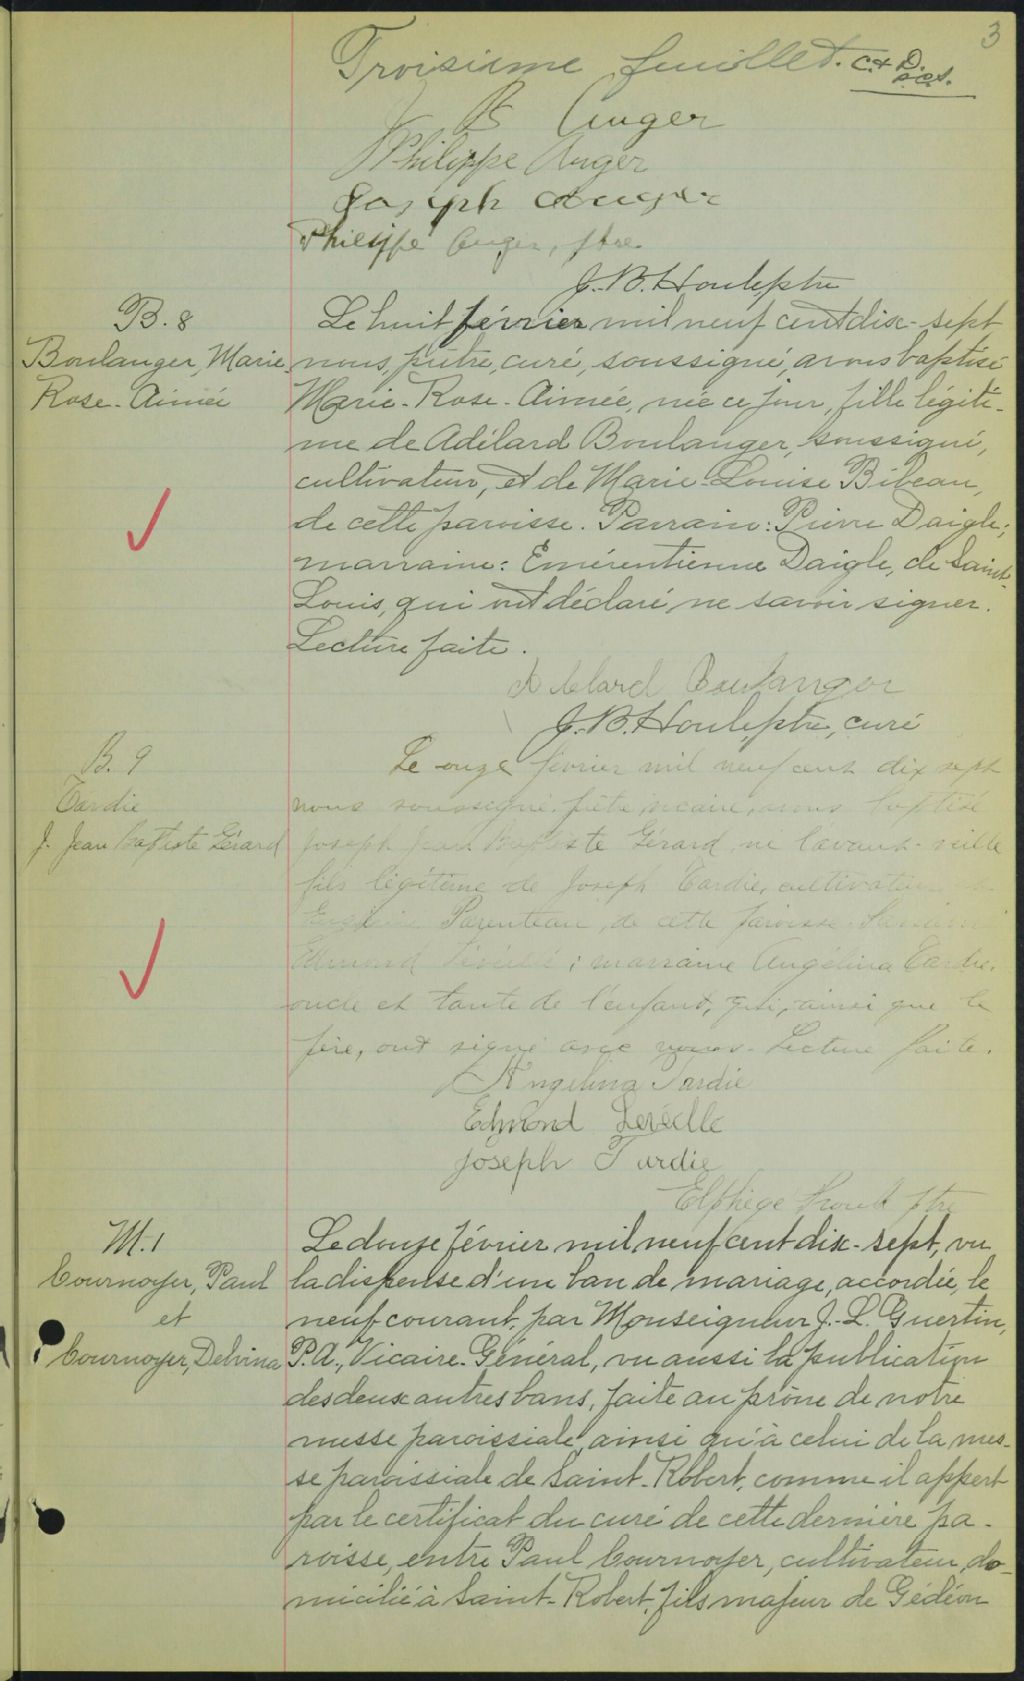 3
Troisième feuillet. C. & D.
P.C.S.
B Auger
Philippe Auger
Joseph Auger
Philippe Auger, ptre.
J.-B. Houle, ptre
B. 8
Boulanger, Marie-
Rose-Aimée
Le huit février mil neuf cent dix-sept
nous, prêtre, curé, soussigné, avons baptisé
Marie-Rose-Aimée, née ce jour, fille légiti-
me de Adélard Boulanger, soussigné,
cultivateur, et de Marie-Louise Bibeau,
de cette paroisse. Parrain: Pierre Daigle;
marraine: Emérentienne Daigle, de Saint-
Louis, qui ont déclaré ne savoir signer.
Lecture faite.
Adelard Boulanger
J.-B. Houle, ptre, curé
B. 9
Tardie
J. Jean Baptiste Gérard
Le onze février mil neuf cent dix sept
nous soussigné, prêtre vicaire, avons baptisé
Joseph Jean Baptiste Gérard, né l'avant-veille
fils légitime de Joseph Tardie, cultivateur
Parenteau, de cette paroisse. Parrain
Edmond ; marraine Angélina Tardie,
oncle et tante de l'enfant, qui, ainsi que le
père, ont signé avec nous. Lecture faite.
Angelina Tardie
Edmond Léveillé
Joseph Tardie
Elphège ptre
M. 1
Cournoyer, Paul
et
Cournoyer, Delvina
Le douze février mil neuf cent dix-sept, vu
la dispense d'un ban de mariage, accordée, le
neuf courant, par Monseigneur J.-L. Guertin,
P.A., Vicaire-Général, vu aussi la publication
des deux autres bans, faite au prône de notre
messe paroissiale, ainsi qu'à celui de la mes-
se paroissiale de Saint-Robert, comme il appert
par le certificat du curé de cette dernière pa-
roisse, entre Paul Cournoyer, cultivateur, do-
micilié à Saint-Robert, fils majeur de Gédéon